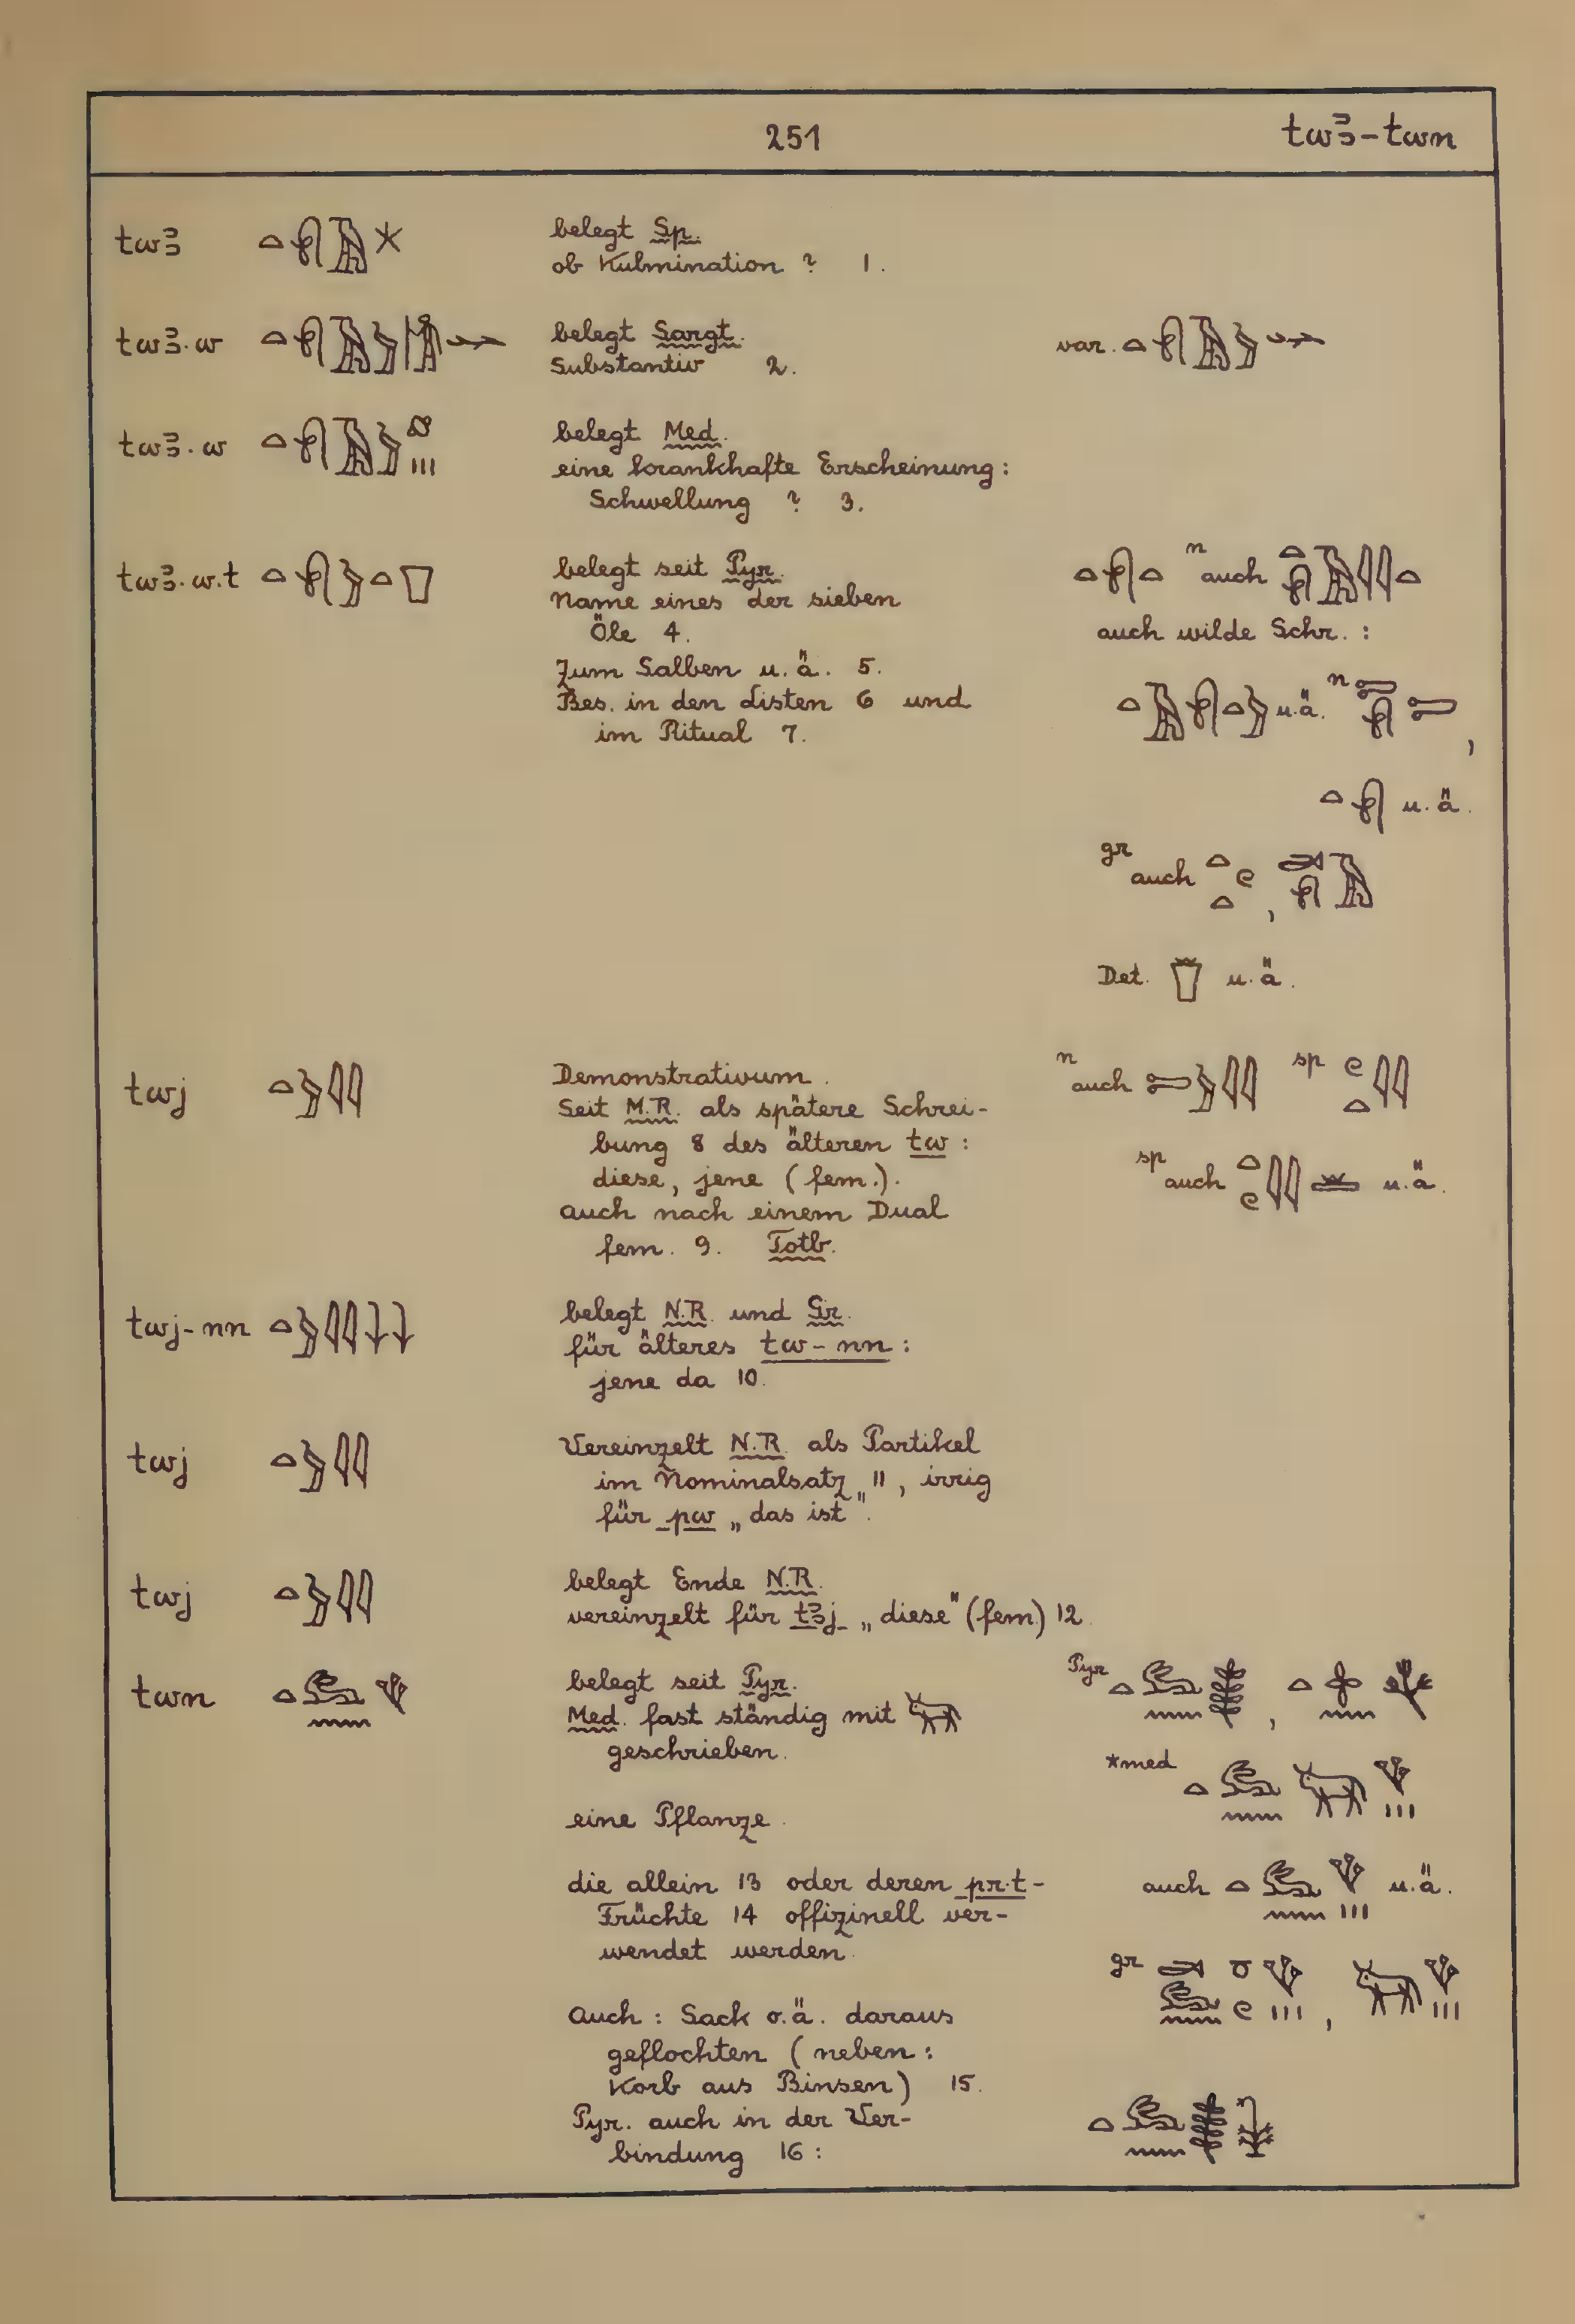 251
twꜣ-twn
twꜣ
belegt Sp.
ob Kulmination ? 1.
twꜣ.w
belegt Sargt.
Substantiv 2.
var.
twꜣ.w
belegt Med.
eine krankhafte Erscheinung:
Schwellung ? 3.
twꜣ.w.t
belegt seit Pyr.
Name eines der sieben
Öle 4.
Zum Salben u.ä. 5.
Bes. in den Listen 6 und
im Ritual 7.
n auch
auch wilde Schr. :
u.ä. n ,
u.ä.
gr auch ,
Det. u.ä.
twj
Demonstrativum.
Seit M.R. als spätere Schrei-
bung 8 des älteren tw :
diese, jene (fem.).
auch nach einem Dual
fem. 9. Totb.
n auch sp
sp auch u.ä.
twj-nn
belegt N.R. und Gr.
für älteres tw-nn :
jene da 10.
twj
Vereinzelt N.R. als Partikel
im Nominalsatz „ 11 “, irrig
für pw „das ist“.
twj
belegt Ende N.R.
vereinzelt für tꜣj „diese“ (fem.) 12.
twn
belegt seit Pyr.
Med. fast ständig mit
geschrieben.
eine Pflanze.
die allein 13 oder deren pr.t-
Früchte 14 offizinell ver-
wendet werden.
Auch : Sack o.ä. daraus
geflochten (neben :
Korb aus Binsen) 15.
Pyr. auch in der Ver-
bindung 16 :
Pyr ,
*med
auch u.ä.
gr ,